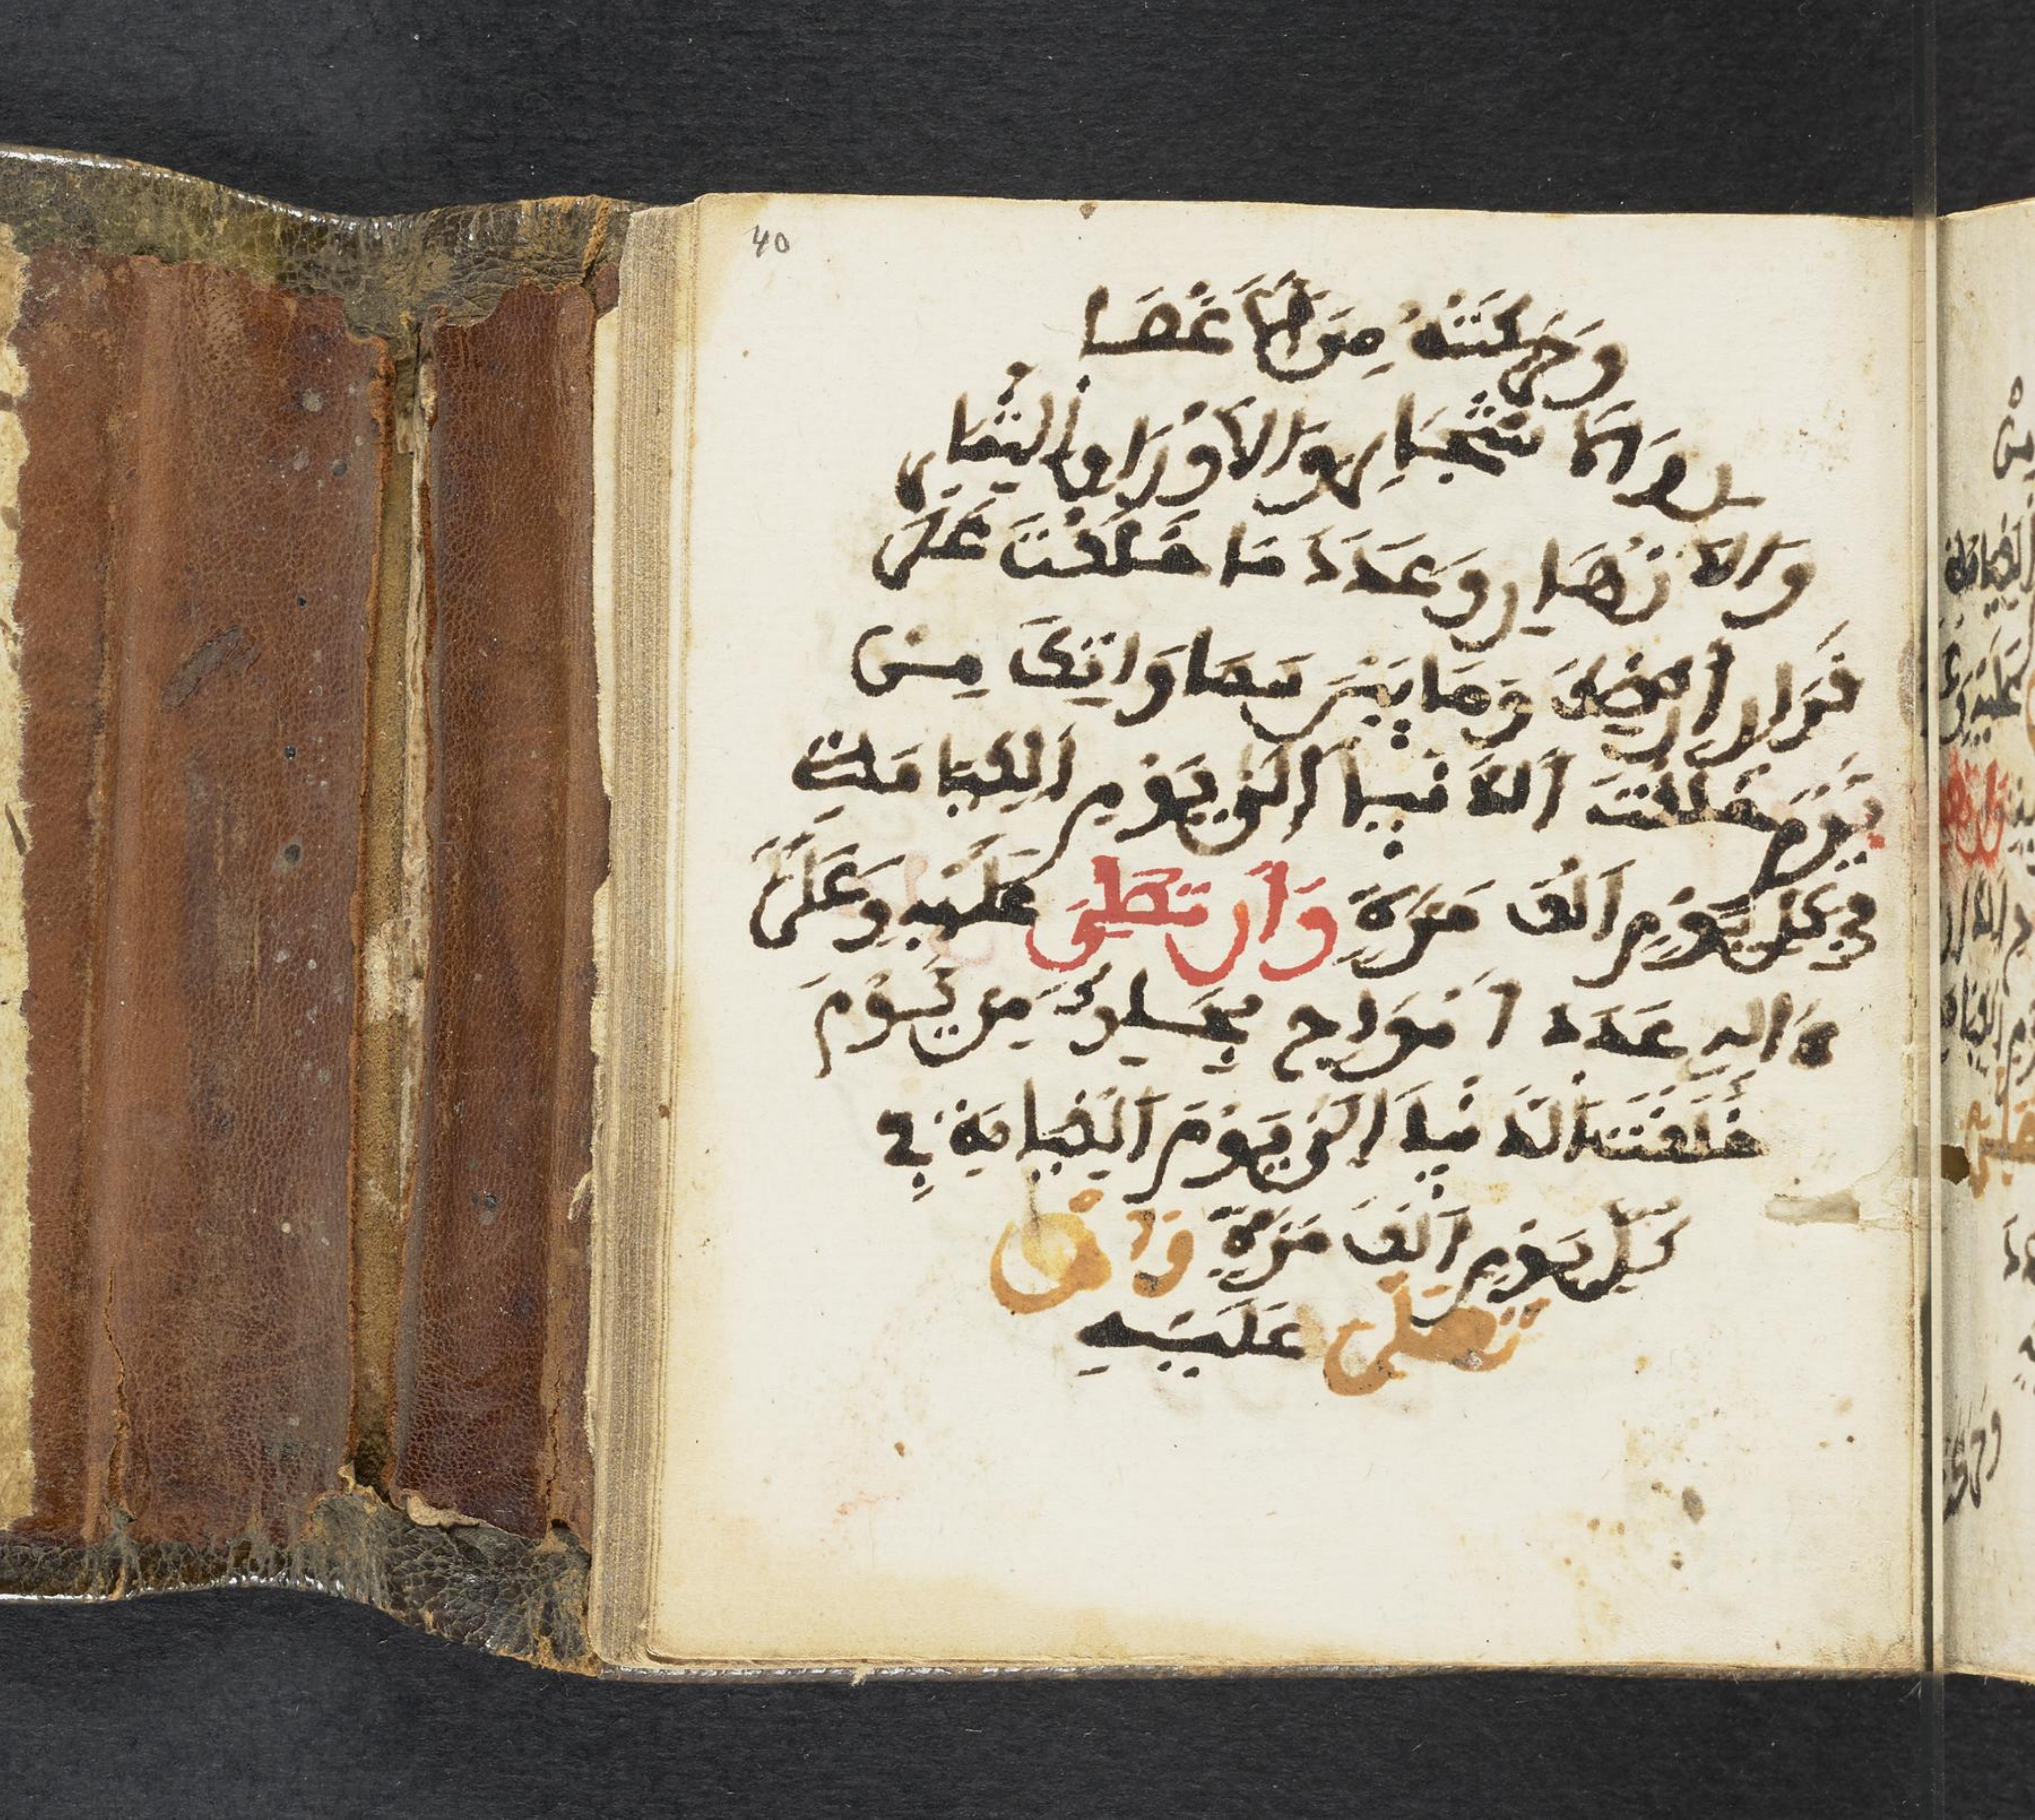 40
وَحَرَكَتْهُ مِنَ الْأَغْصَا
نِ وَالْأَشْجَارِ وَالْأَوْرَاقِ وَالثِّمَارِ
وَالْأَزْهَارِ وَعَدَدَ مَا خَلَقْتَ عَلَى
قَرَارِ أَرْضِكَ وَمَا بَيْنَ سَمَاوَاتِكَ مِنْ
يَوْمَ خَلَقْتَ الدُّنْيَا إِلَى يَوْمِ الْقِيَامَةِ
فِي كُلِّ يَوْمٍ أَلْفَ مَرَّةٍ وَأَن تُصَلِّيَ عَلَيْهِ وَعَلَى
ءَالِهِ عَدَدَ أَمْوَاجِ بِحَارِكَ مِن يَوْمَ
خَلَقْتَ الدُّنْيَا إِلَى يَوْمِ الْقِيَامَةِ فِي
كُلِّ يَوْمٍ أَلْفَ مَرَّةٍ وَأَنْ
تُصَلِّيَ عَلَيْهِ